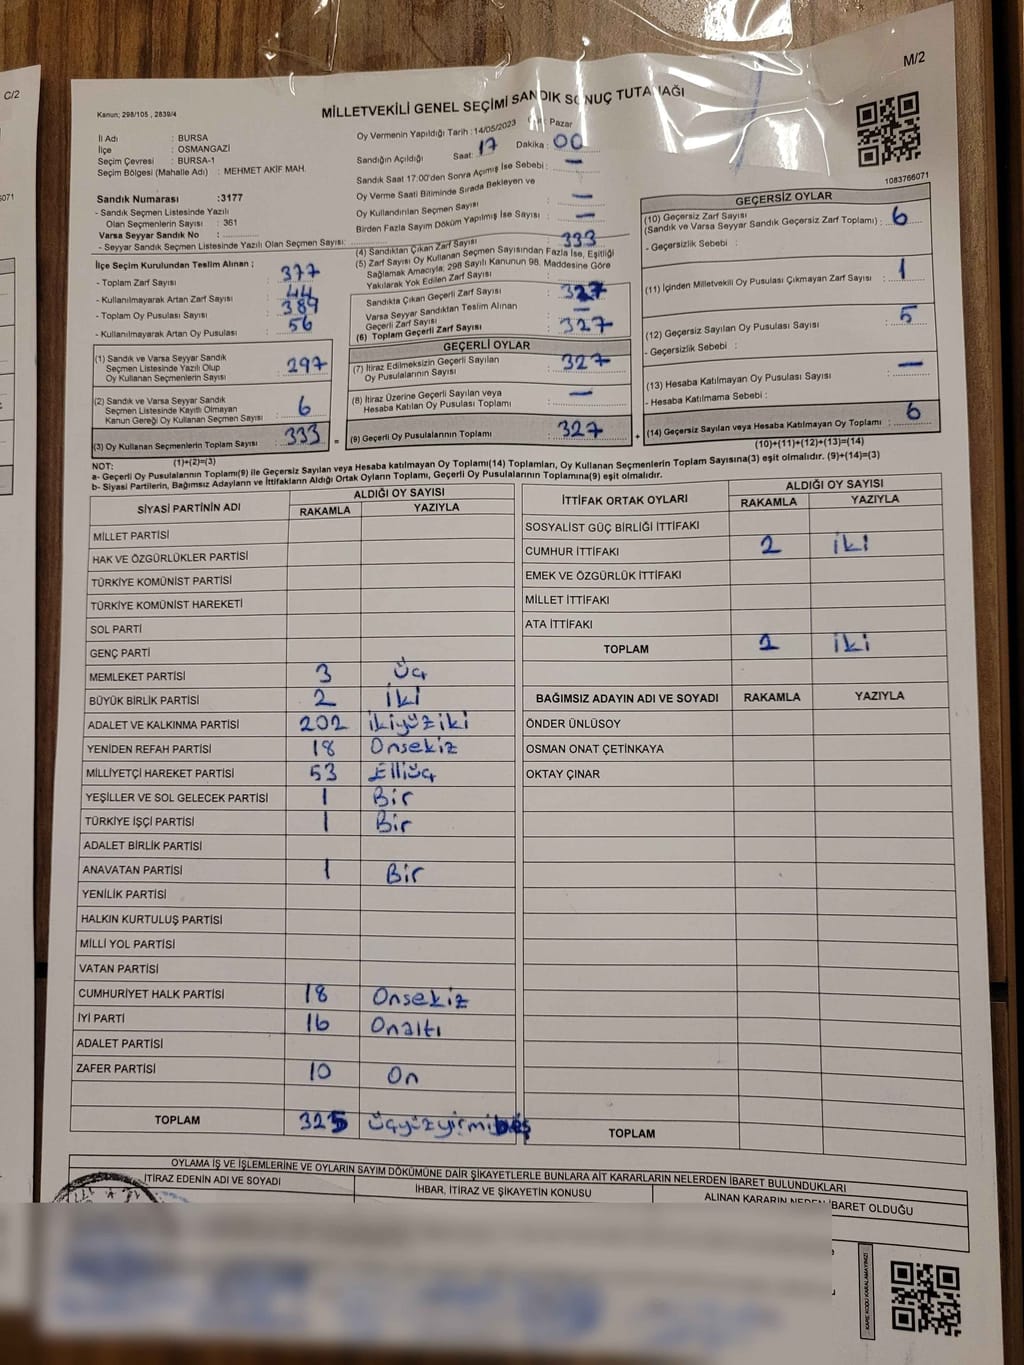 C/2
M/2
Kanun; 298/105 , 2839/4
MİLLETVEKİLİ GENEL SEÇİMİ SANDIK SONUÇ TUTANAĞI
İl Adı : BURSA
İlçe : OSMANGAZİ
Seçim Çevresi : BURSA-1
Seçim Bölgesi (Mahalle Adı) : MEHMET AKİF MAH.
Sandık Numarası :3177
- Sandık Seçmen Listesinde Yazılı
Olan Seçmenlerin Sayısı : 361
Varsa Seyyar Sandık No :
- Seyyar Sandık Seçmen Listesinde Yazılı Olan Seçmen Sayısı:
Oy Vermenin Yapıldığı Tarih :14/05/2023 Pazar
Sandığın Açıldığı Saat: 17 Dakika : 00
Sandık Saat 17:00'den Sonra Açımış İse Sebebi : —
Oy Verme Saati Bitiminde Sırada Bekleyen ve
Oy Kullandırılan Seçmen Sayısı : —
Birden Fazla Sayım Döküm Yapılmış İse Sayısı : —
1083766071
İlçe Seçim Kurulundan Teslim Alınan ;
- Toplam Zarf Sayısı : 377
- Kullanılmayarak Artan Zarf Sayısı : 44
- Toplam Oy Pusulası Sayısı : 389
- Kullanılmayarak Artan Oy Pusulası : 56
(1) Sandık ve Varsa Seyyar Sandık
Seçmen Listesinde Yazılı Olup
Oy Kullanan Seçmenlerin Sayısı : 297
(2) Sandık ve Varsa Seyyar Sandık
Seçmen Listesinde Kayıtlı Olmayan
Kanun Gereği Oy Kullanan Seçmen Sayısı : 6
(3) Oy Kullanan Seçmenlerin Toplam Sayısı : 333
(1)+(2)=(3)
(4) Sandıktan Çıkan Zarf Sayısı : 333
(5) Zarf Sayısı Oy Kullanan Seçmen Sayısından Fazla İse, Eşitliği
Sağlamak Amacıyla; 298 Sayılı Kanunun 98. Maddesine Göre
Yakılarak Yok Edilen Zarf Sayısı : —
Sandıkta Çıkan Geçerli Zarf Sayısı : 327
Varsa Seyyar Sandıktan Teslim Alınan
Geçerli Zarf Sayısı : —
(6) Toplam Geçerli Zarf Sayısı : 327
GEÇERLİ OYLAR
(7) İtiraz Edilmeksizin Geçerli Sayılan
Oy Pusulalarının Sayısı : 327
(8) İtiraz Üzerine Geçerli Sayılan veya
Hesaba Katılan Oy Pusulası Toplamı : —
= (9) Geçerli Oy Pusulalarının Toplamı : 327
GEÇERSİZ OYLAR
(10) Geçersiz Zarf Sayısı
(Sandık ve Varsa Seyyar Sandık Geçersiz Zarf Toplamı) : 6
- Geçersizlik Sebebi :
(11) İçinden Milletvekili Oy Pusulası Çıkmayan Zarf Sayısı : 1
(12) Geçersiz Sayılan Oy Pusulası Sayısı : 5
- Geçersizlik Sebebi :
(13) Hesaba Katılmayan Oy Pusulası Sayısı —
- Hesaba Katılmama Sebebi :
+ (14) Geçersiz Sayılan veya Hesaba Katılmayan Oy Toplamı : 6
(10)+(11)+(12)+(13)=(14)
NOT:
a- Geçerli Oy Pusulalarının Toplamı(9) ile Geçersiz Sayılan veya Hesaba katılmayan Oy Toplamı(14) Toplamları, Oy Kullanan Seçmenlerin Toplam Sayısına(3) eşit olmalıdır. (9)+(14)=(3)
b- Siyasi Partilerin, Bağımsız Adayların ve İttifakların Aldığı Ortak Oyların Toplamı, Geçerli Oy Pusulalarının Toplamına(9) eşit olmalıdır.
SİYASİ PARTİNİN ADI ALDIĞI OY SAYISI
RAKAMLA YAZIYLA
MİLLET PARTİSİ
HAK VE ÖZGÜRLÜKLER PARTİSİ
TÜRKİYE KOMÜNİST PARTİSİ
TÜRKİYE KOMÜNİST HAREKETİ
SOL PARTİ
GENÇ PARTİ
MEMLEKET PARTİSİ 3 Üç
BÜYÜK BİRLİK PARTİSİ 2 İki
ADALET VE KALKINMA PARTİSİ 202 ikiyüziki
YENİDEN REFAH PARTİSİ 18 Onsekiz
MİLLİYETÇİ HAREKET PARTİSİ 53 Elliüç
YEŞİLLER VE SOL GELECEK PARTİSİ 1 Bir
TÜRKİYE İŞÇİ PARTİSİ 1 Bir
ADALET BİRLİK PARTİSİ
ANAVATAN PARTİSİ 1 Bir
YENİLİK PARTİSİ
HALKIN KURTULUŞ PARTİSİ
MİLLİ YOL PARTİSİ
VATAN PARTİSİ
CUMHURİYET HALK PARTİSİ 18 Onsekiz
İYİ PARTİ 16 Onaltı
ADALET PARTİSİ
ZAFER PARTİSİ 10 On
TOPLAM 325 üçyüzyirmibeş
İTTİFAK ORTAK OYLARI ALDIĞI OY SAYISI
RAKAMLA YAZIYLA
SOSYALİST GÜÇ BİRLİĞİ İTTİFAKI
CUMHUR İTTİFAKI 2 iki
EMEK VE ÖZGÜRLÜK İTTİFAKI
MİLLET İTTİFAKI
ATA İTTİFAKI
TOPLAM 2 iki
BAĞIMSIZ ADAYIN ADI VE SOYADI RAKAMLA YAZIYLA
ÖNDER ÜNLÜSOY
OSMAN ONAT ÇETİNKAYA
OKTAY ÇINAR
TOPLAM
OYLAMA İŞ VE İŞLEMLERİNE VE OYLARIN SAYIM DÖKÜMÜNE DAİR ŞİKAYETLERLE BUNLARA AİT KARARLARIN NELERDEN İBARET BULUNDUKLARI
İTİRAZ EDENİN ADI VE SOYADI İHBAR, İTİRAZ VE ŞİKAYETİN KONUSU ALINAN KARARIN NEDEN İBARET OLDUĞU
KARE KODU KARALAMAYINIZ!